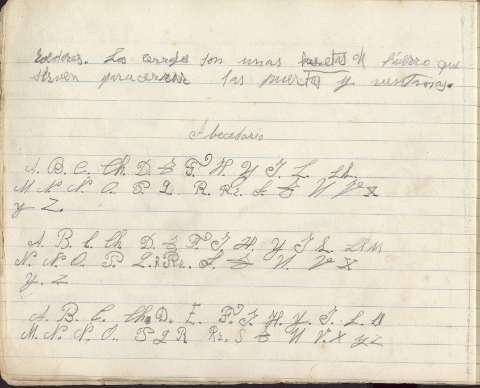 Los cerrojos son unas barretas de hierro que
sirven para cerrar las puertas y ventanas.
Abecedario
A. B. C. Ch. D. E F. H. Y J. L. Ll.
M N. N. O. P Q. R. Rr. S. T U V X
y Z.
A. B. C Ch D. E F J. H Y J L. Ll M
N. N. O. P. Q. R Rr. S. T U. V X
Y. Z
A. B. C. Ch. D. E. F. J. H. Y. J. L. Ll
M. N. N. O. P Q R Rr. S T U V. X y Z